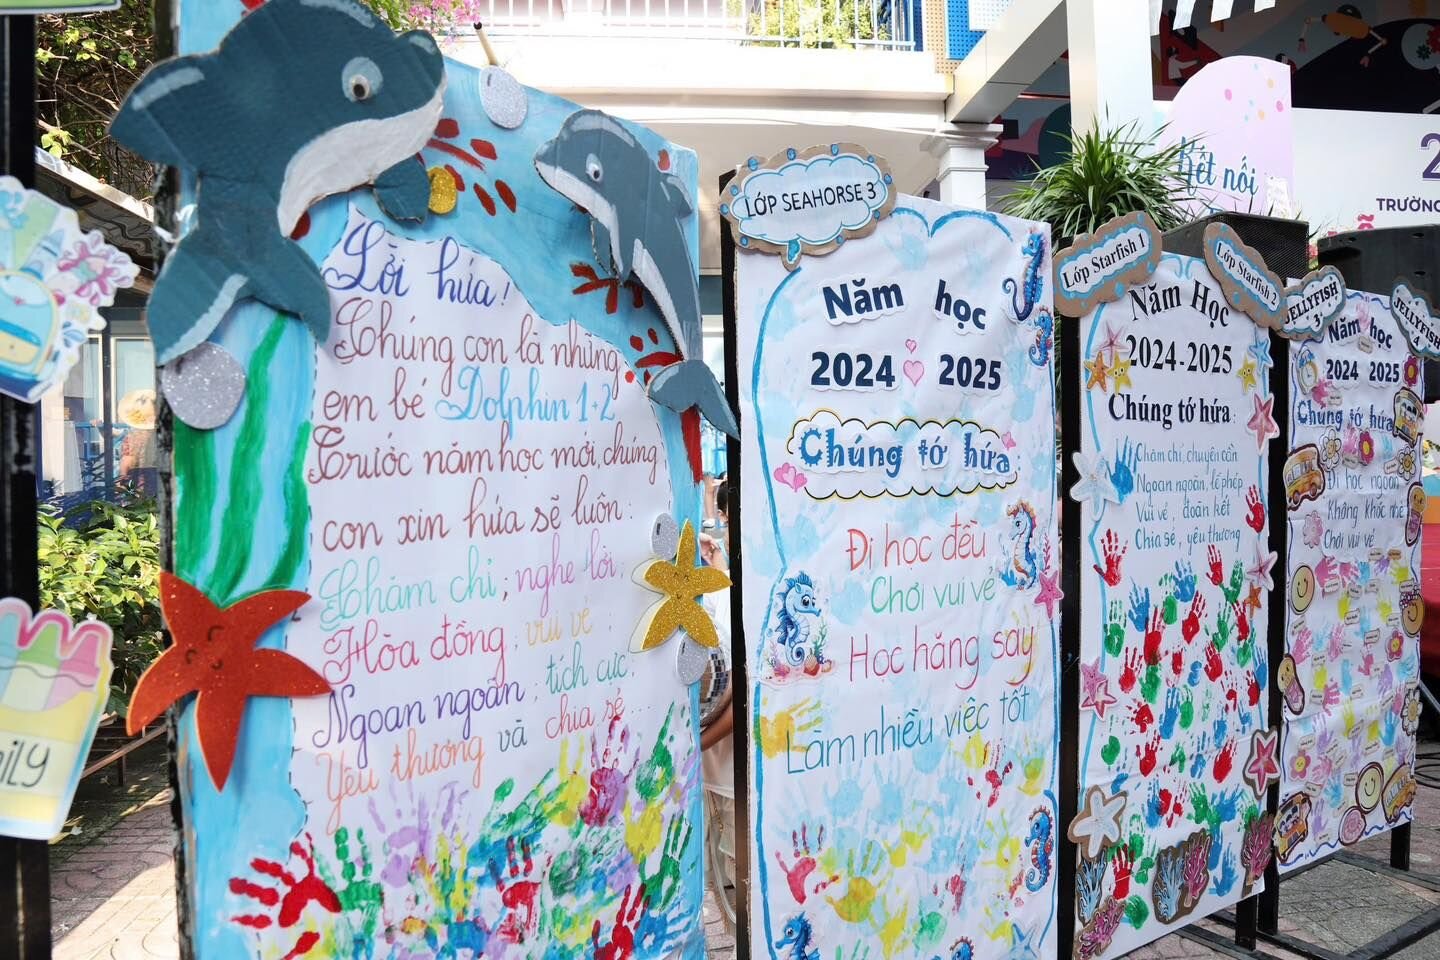 Lời hứa!
Chúng con là những
em bé Dolphin 1+2
Trước năm học mới, chúng
con xin hứa sẽ luôn:
Chăm chỉ; nghe lời;
Hòa đồng; vui vẻ;
Ngoan ngoãn; tích cực;
Yêu thương và chia sẻ...
LỚP SEAHORSE 3
Năm học
2024 2025
Chúng tớ hứa
Đi học đều
Chơi vui vẻ
Học hăng say
Làm nhiều việc tốt
Lớp Starfish 1
Lớp Starfish 2
Năm Học
2024-2025
Chúng tớ hứa:
Chăm chỉ, chuyên cần
Ngoan ngoãn, lễ phép
Vui vẻ, đoàn kết
Chia sẻ, yêu thương
JELLYFISH
3
JELLYFISH
4
Năm học
2024 2025
Chúng tớ hứa
Đi học ngoan
Không khóc nhè
Chơi vui vẻ
Kết nối
2
TRƯỜN